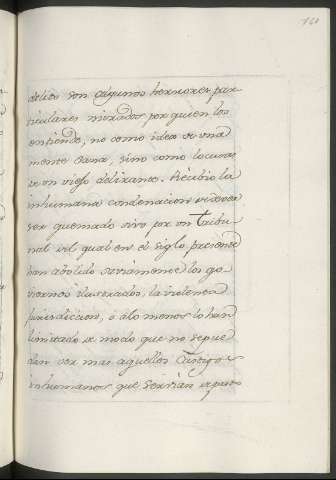 delitos son algunos herrores par
ticulares mirados por quien los
entiende, no como idea de una
mente sana, sino como locuras
de un viejo delirante. Recibio la
inhumana condenacion
ser quemado vivo por un Tribu
nal del qual en el siglo presente
han abolido seriamente los go
viernos ilustrados, la
jurisdiccion, ó alo menos lo han
limitado de modo que no se pue
dan ver mas aquellos Castigos
inhumanos que servian